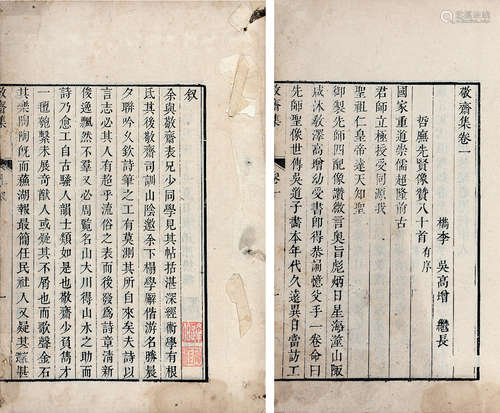 叙
余與敬齋表兄少同學見其帖括湛深經術學有根
氐其後敬齋司訓山陰邀余下榻學廨偕游名勝晨
夕聯吟久欽詩筆之工有莫測其所自來矣夫詩以
言志必其人有超乎流俗之表而後發爲詩章清新
俊逸飄然不羣又必周覽名山大川得山水之助而
詩乃愈工自古騷人韻士類如是也敬齋少負雋才
一氊匏繫未展奇猷人或疑其不屑也而歌聲金石
其樂陶陶旣而蕪湖報最簡任民社人又疑其
敬齋集
敬齋集卷一
檇李 吳高增 懋長
哲廡先賢像贊八十首 有序
國家重道崇儒超隆前古
君師立極授受同源我
聖祖仁皇帝達天知聖
御製先師四配像讚微言奧旨彪炳日星海澨山陬
咸沐教澤高增幼受書即得恭誦憶父手一卷命曰
先師聖像世傳吳道子畫本年代久遠異日當訪工
敬齋集